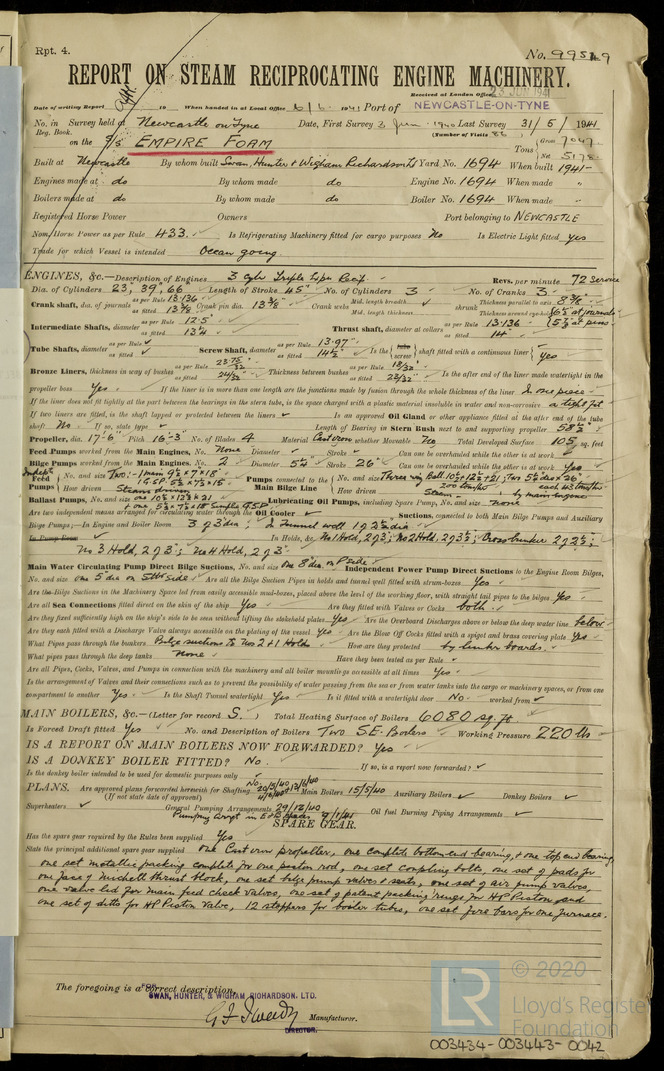 Rpt. 4.
No. 99549
REPORT ON STEAM RECIPROCATING ENGINE MACHINERY.
Received at London Office 23 JUN 1941
Date of writing Report 19 When handed in at Local Office 6/6 1941 Port of NEWCASTLE-ON-TYNE
No. in Survey held at Newcastle on Tyne Date, First Survey 3 June 1940 Last Survey 31/5/1941
Reg. Book. (Number of Visits 86)
on the S/S EMPIRE FOAM Tons Gross 7047 Net 5178
Built at Newcastle By whom built Swan, Hunter & Wigham Richardson Ltd Yard No. 1694 When built 1941
Engines made at do By whom made do Engine No. 1694 When made "
Boilers made at do By whom made do Boiler No. 1694 When made "
Registered Horse Power Owners Port belonging to NEWCASTLE
Nom. Horse Power as per Rule 433. Is Refrigerating Machinery fitted for cargo purposes No Is Electric Light fitted yes
Trade for which Vessel is intended Ocean going.
ENGINES, &c.—Description of Engines 3 Cylr Triple Expn Recip. Revs. per minute 72 service
Dia. of Cylinders 23, 39, 66 Length of Stroke 45" No. of Cylinders 3 No. of Cranks 3
Crank shaft, dia. of journals as per Rule 13.136 as fitted 13 7/8" Crank pin dia. 13 7/8" Crank webs Mid. length breadth Mid. length thickness shrunk Thickness parallel to axis 8 3/8" Thickness around eye-hole 6 1/2 at journals 5 7/8 at pins
Intermediate Shafts, diameter as per Rule 12.5" as fitted 13 1/4 Thrust shaft, diameter at collars as per Rule 13.136 as fitted 14"
Tube Shafts, diameter as per Rule as fitted Screw Shaft, diameter as per Rule 13.97" as fitted 14 1/2" Is the tube screw shaft fitted with a continuous liner yes
Bronze Liners, thickness in way of bushes as per Rule 23.75/32 as fitted 24/32 Thickness between bushes as per Rule 18/32 as fitted 22/32 Is the after end of the liner made watertight in the
propeller boss Yes If the liner is in more than one length are the junctions made by fusion through the whole thickness of the liner In one piece
If the liner does not fit tightly at the part between the bearings in the stern tube, is the space charged with a plastic material insoluble in water and non-corrosive a tight fit
If two liners are fitted, is the shaft lapped or protected between the liners Is an approved Oil Gland or other appliance fitted at the after end of the tube
shaft No If so, state type Length of Bearing in Stern Bush next to and supporting propeller 58 1/2"
Propeller, dia. 17'-6" Pitch 16'-3" No. of Blades 4 Material Cast iron whether Moveable No Total Developed Surface 105 sq. feet
Feed Pumps worked from the Main Engines, No. None Diameter Stroke Can one be overhauled while the other is at work
Bilge Pumps worked from the Main Engines, No. 2 Diameter 5 1/4" Stroke 26" Can one be overhauled while the other is at work Yes
Feed Pumps No. and size Two; 1 main 9 1/2 x 7 x 18" How driven Steam driven
Pumps connected to the Main Bilge Line No. and size How driven Steam by main engine
Ballast Pumps, No. and size one 10 1/2 x 12 1/2 x 21 Lubricating Oil Pumps, including Spare Pump, No. and size none
Are two independent means arranged for circulating water through the Oil Cooler Suctions, connected to both Main Bilge Pumps and Auxiliary
Bilge Pumps;—In Engine and Boiler Room 3 of 3 dia; In Tunnel well 1 of 2 1/2 dia
In Pump Room In Holds, &c. No 1 Hold, 2 of 3"; No 2 Hold, 2 of 3 1/2"; Cross bunker 2 of 2 1/2";
No 3 Hold, 2 of 3"; No 4 Hold, 2 of 3"
Main Water Circulating Pump Direct Bilge Suctions, No. and size One 8" dia. on P side Independent Power Pump Direct Suctions to the Engine Room Bilges,
No. and size one 5" dia on Stbd side Are all the Bilge Suction Pipes in holds and tunnel well fitted with strum-boxes Yes
Are the Bilge Suctions in the Machinery Space led from easily accessible mud-boxes, placed above the level of the working floor, with straight tail pipes to the bilges Yes
Are all Sea Connections fitted direct on the skin of the ship Yes Are they fitted with Valves or Cocks both
Are they fixed sufficiently high on the ship's side to be seen without lifting the stokehold plates Yes Are the Overboard Discharges above or below the deep water line below
Are they each fitted with a Discharge Valve always accessible on the plating of the vessel Yes Are the Blow Off Cocks fitted with a spigot and brass covering plate Yes
What Pipes pass through the bunkers Bilge suctions to Nos 2 & 1 Hold How are they protected by timber boards.
What pipes pass through the deep tanks none Have they been tested as per Rule
Are all Pipes, Cocks, Valves, and Pumps in connection with the machinery and all boiler mountings accessible at all times Yes
Is the arrangement of Valves and their connections such as to prevent the possibility of water passing from the sea or from water tanks into the cargo or machinery spaces, or from one
compartment to another Yes Is the Shaft Tunnel watertight Yes Is it fitted with a watertight door No worked from
MAIN BOILERS, &c.—(Letter for record S.) Total Heating Surface of Boilers 6080 sq ft
Is Forced Draft fitted Yes No. and Description of Boilers Two S.E. Boilers Working Pressure 220 lbs
IS A REPORT ON MAIN BOILERS NOW FORWARDED? Yes
IS A DONKEY BOILER FITTED? No. If so, is a report now forwarded?
Is the donkey boiler intended to be used for domestic purposes only
PLANS. Are approved plans forwarded herewith for Shafting Main Boilers 15/5/40 Auxiliary Boilers Donkey Boilers
(If not state date of approval)
Superheaters General Pumping Arrangements 29/12/40 Oil fuel Burning Piping Arrangements
Pumping Arrgt in E & B Spaces 9/1/41
SPARE GEAR.
Has the spare gear required by the Rules been supplied Yes
State the principal additional spare gear supplied one Cast iron propeller, one complete bottom end bearing, & one top end bearing,
one set metallic packing complete for one piston rod, one set coupling bolts, one set of pads for
one face of Michell thrust block, one set bilge pump valves & seats, one set of air pump valves,
one valve lid for main feed check valves, one set of patent packing rings for HP Piston and
one set of ditto for HP Piston Valve, 12 stoppers for boiler tubes, one set fire bars for one furnace.
The foregoing is a correct description,
FOR SWAN, HUNTER, & WIGHAM RICHARDSON, LTD.
G F Tweedy Manufacturer.
DIRECTOR.
© 2020
LR Lloyd's Register
Foundation
003434-003443-0042